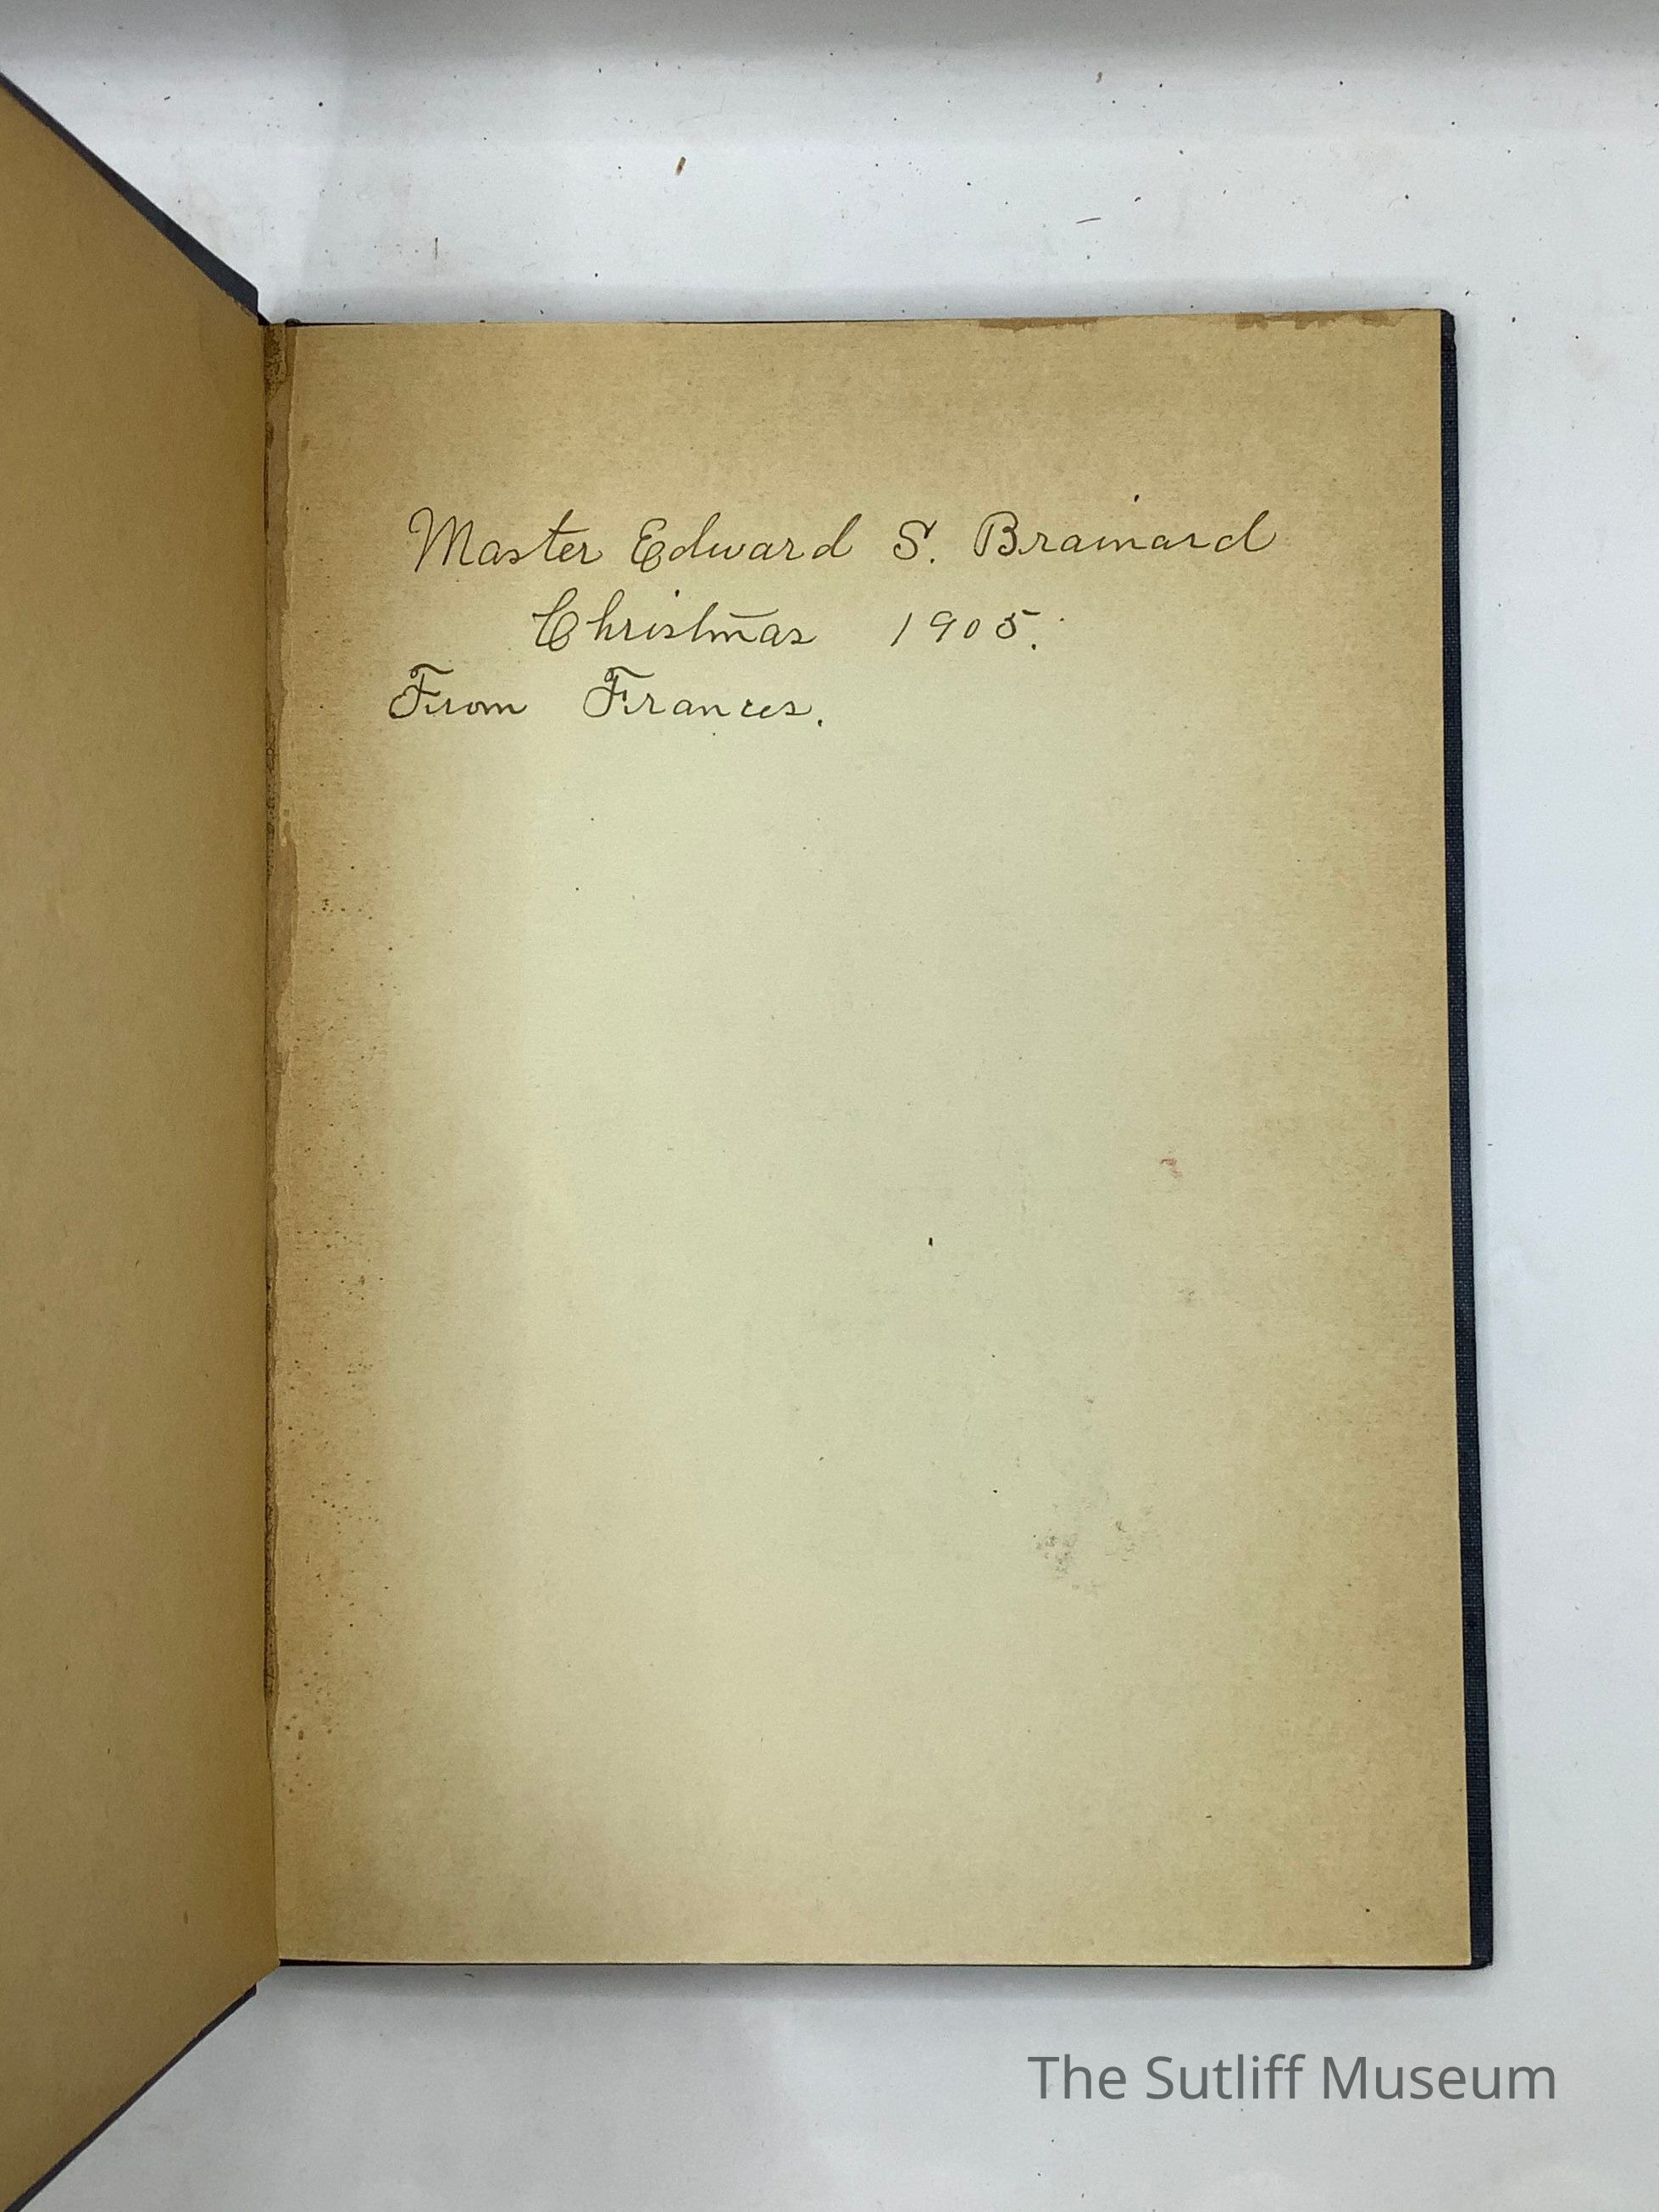 Master Edward S. Brainard
Christmas 1905.
From Frances.
The Sutliff Museum